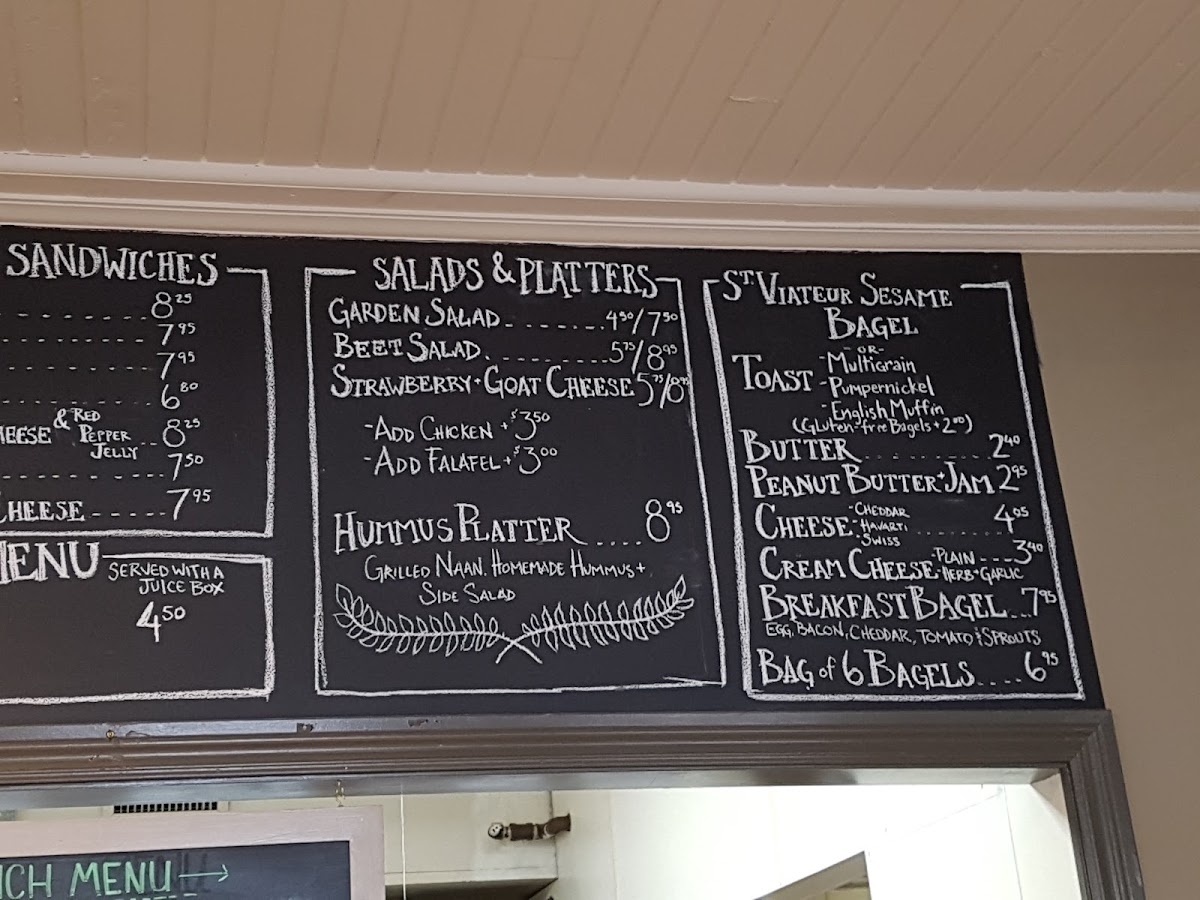 SANDWICHES
8 25
7 95
7 95
6 80
& RED PEPPER JELLY 8 25
7 50
CHEESE 7 95
MENU SERVED WITH A
JUICE BOX
4 50
SALADS & PLATTERS
GARDEN SALAD 4 50/7 50
BEET SALAD 5 75/8 95
STRAWBERRY + GOAT CHEESE 5 75/8 95
- ADD CHICKEN + $3 50
- ADD FALAFEL + $3 00
HUMMUS PLATTER .... 8 95
GRILLED NAAN, HOMEMADE HUMMUS +
SIDE SALAD
ST VIATEUR SESAME
BAGEL
-OR-
TOAST - Multigrain
- Pumpernickel
- English Muffin
(Gluten-free Bagels + 2 00)
BUTTER 2 40
PEANUT BUTTER + JAM 2 95
CHEESE - CHEDDAR
- HAVARTI 4 05
- SWISS
CREAM CHEESE - PLAIN 3 40
- HERB + GARLIC
BREAKFAST BAGEL 7 95
EGG, BACON, CHEDDAR, TOMATO, & SPROUTS
BAG of 6 BAGELS .... 6 95
MENU →